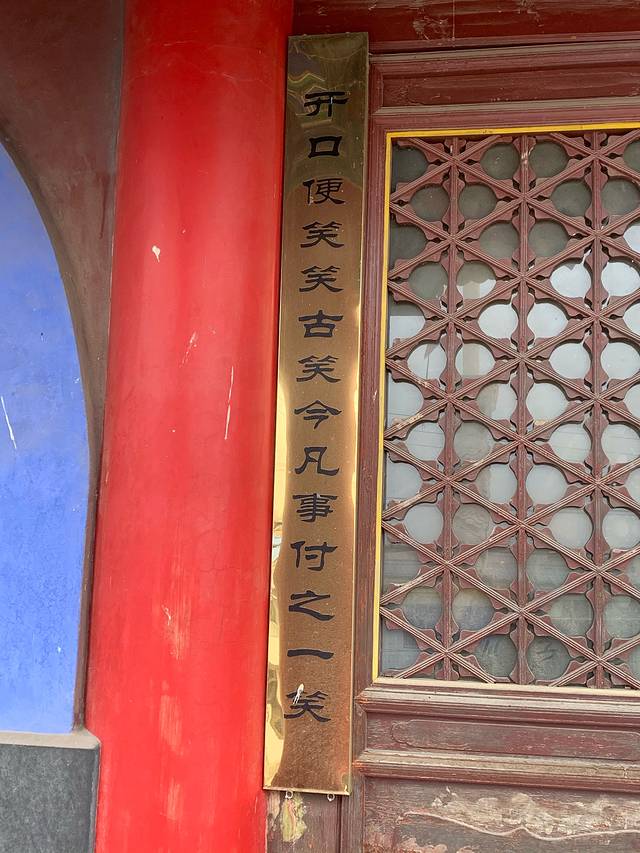 开口便笑笑古笑今凡事付之一笑